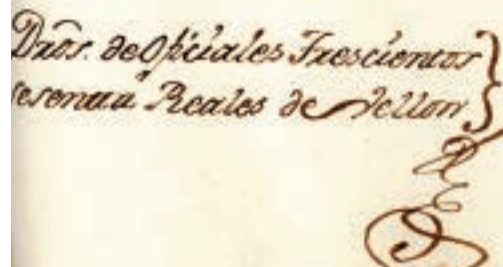 Dros. de Oficiales Trescientos
sesenta Reales de Vellon